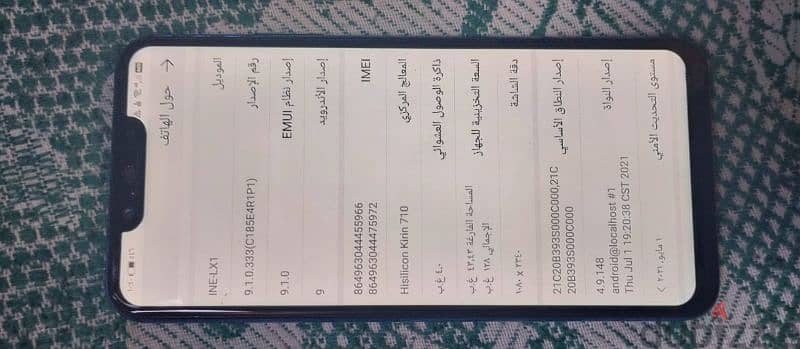 حول الهاتف →
الموديل INE-LX1
رقم الإصدار 9.1.0.333(C185E4R1P1)
إصدار نظام EMUI 9.1.0
إصدار الأندرويد 9
IMEI 864963044455966
864963044475972
المعالج المركزي Hisilicon Kirin 710
ذاكرة الوصول العشوائي ٤٫٠ غ.ب
السعة التخزينية للجهاز المساحة الفارغة: ٤٣٫٤٣ غ.ب
الإجمالي: ١٢٨ غ.ب
دقة الشاشة ٢٣٤٠ × ١٠٨٠
إصدار النطاق الأساسي 21C20B393S000C000,21C
20B393S000C000
إصدار النواة 4.9.148
android@localhost #1
Thu Jul 1 19:20:38 CST 2021
مستوى التحديث الأمني ١ مايو، ٢٠٢١ >